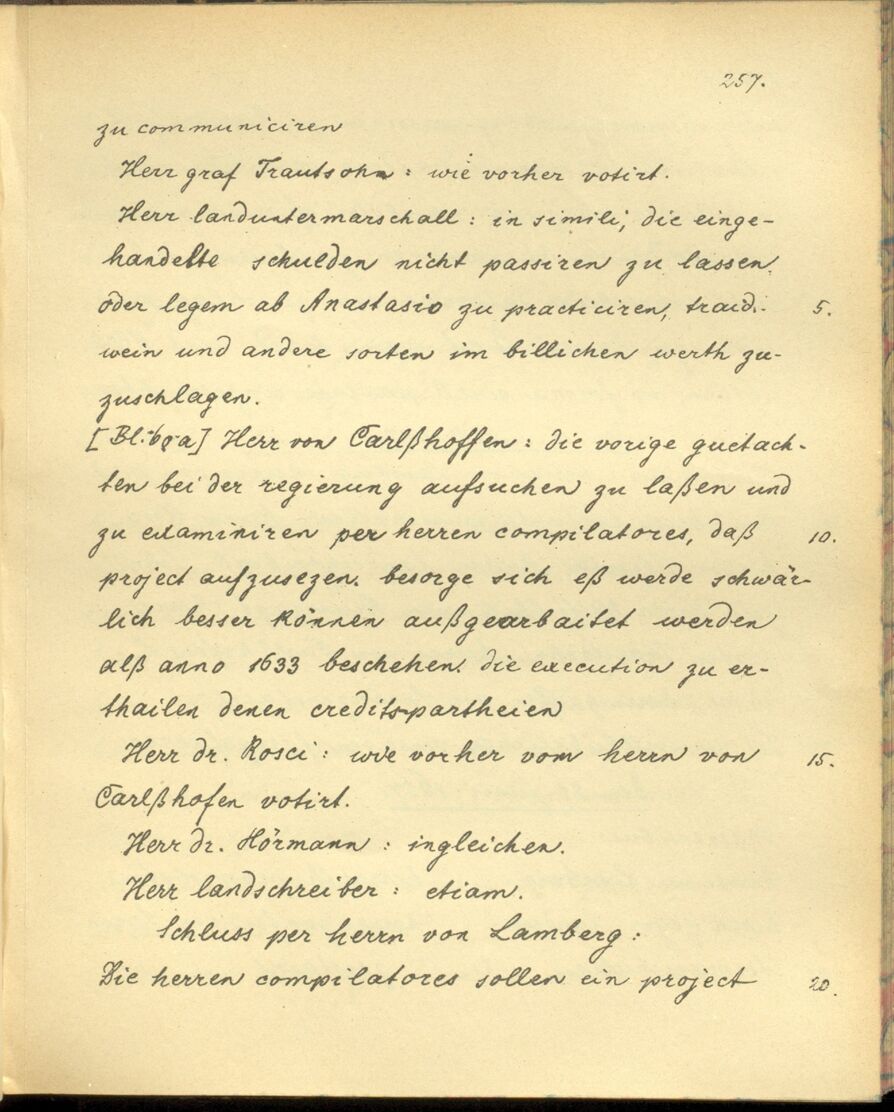 257.
zu communiciren
Herr graf Trautsohn: wie vorher votirt.
Herr landuntermarschall: in simili, die einge-
handelte schulden nicht passiren zu lassen,
oder legem ab Anastasio zu practiciren, traid.. 5.
wein und andere sorten im billichen werth zu-
zuschlagen.
[Bl. a] Herr von Carlßhoffen: die vorige guetach-
ten bei der regierung aufsuchen zu laßen und
zu examiniren per herren compilatores, daß 10.
project aufzusezen. besorge sich eß werde schwär-
lich besser können außgearbaitet werden
alß anno 1633 beschehen. die execution zu er-
thailen denen credits-partheien
Herr dr. Rosci: wie vorher vom herrn von 15.
Carlßhofen votirt.
Herr dr. Hörmann: ingleichen.
Herr landschreiber: etiam.
Schluss per herrn von Lamberg:
Die herren compilatores sollen ein project 20.